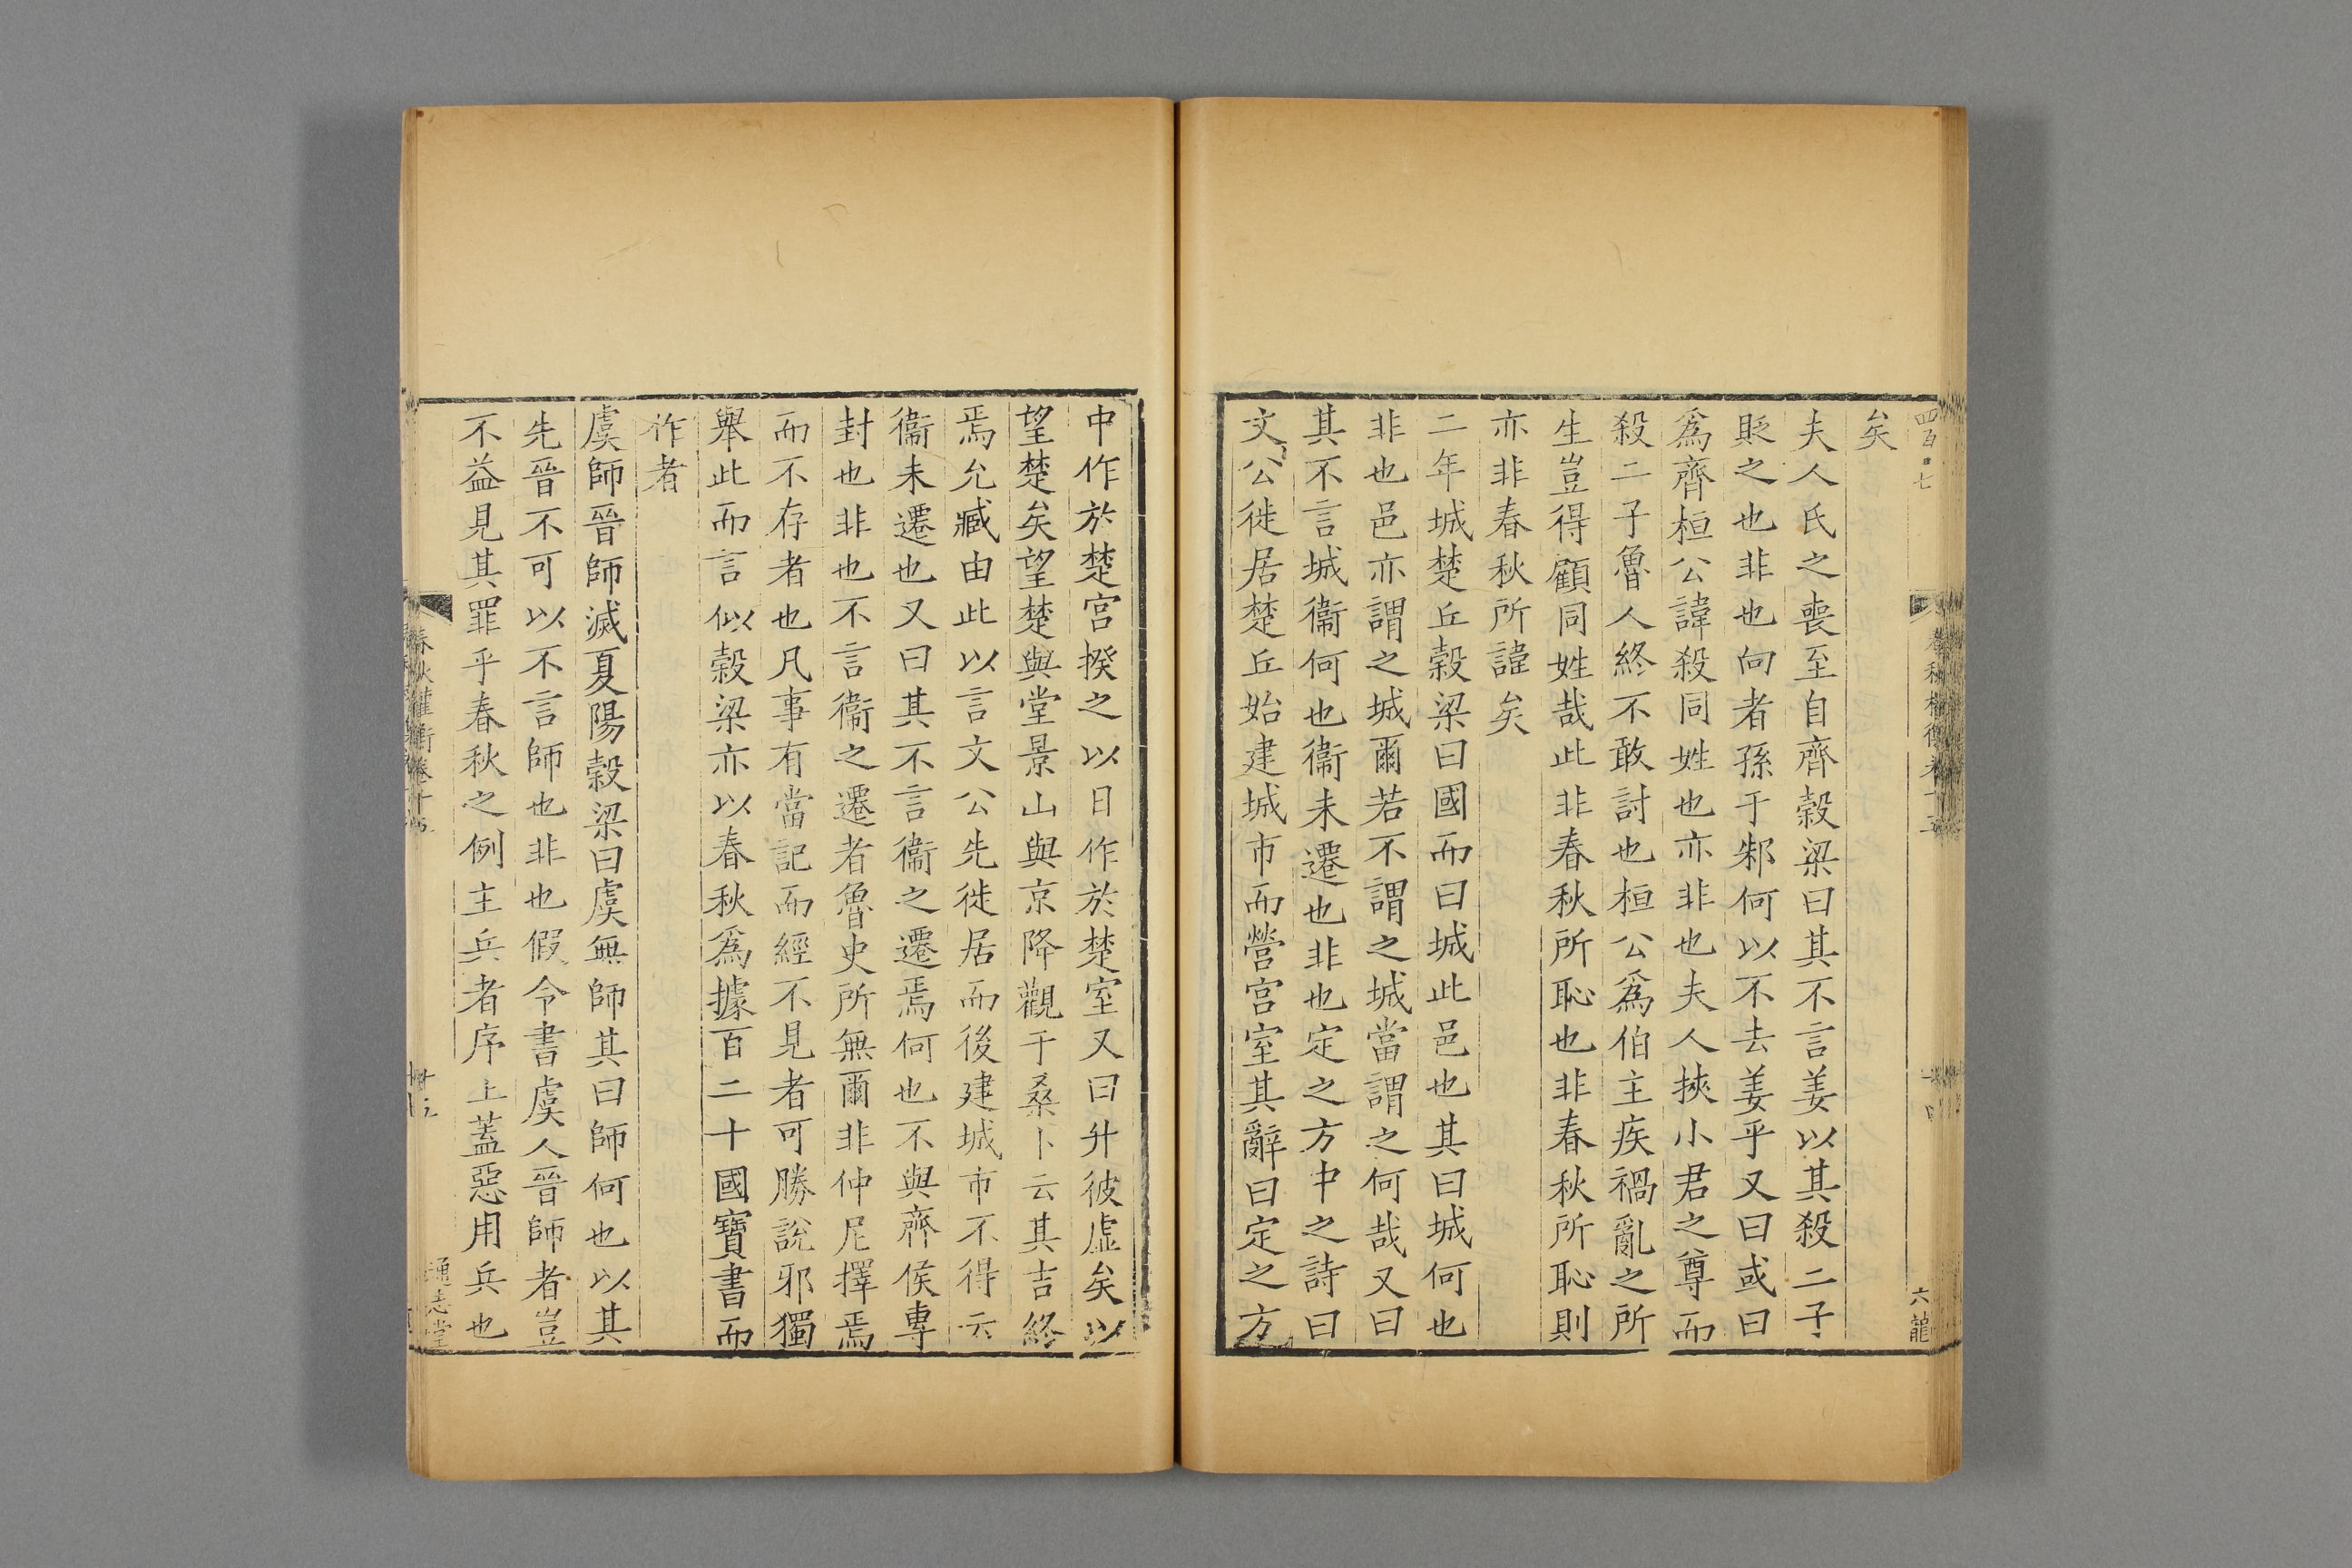 矣
夫人氏之喪至自齊榖梁曰其不言姜以其殺二子
貶之也非也向者孫于邾何以不去姜乎又曰或曰
爲齊桓公諱殺同姓也亦非也夫人挾小君之尊而
殺二子魯人終不敢討也桓公爲伯主疾禍亂之所
生豈得顧同姓哉此非春秋所恥也非春秋所恥則
亦非春秋所諱矣
二年城楚丘榖梁曰國而曰城此邑也其曰城何也
非也邑亦謂之城爾若不謂之城當謂之何哉又曰
其不言城衞何也衞未遷也非也定之方中之詩曰
文公徙居楚丘始建城市而營宮室其辭曰定之方
中作於楚宮揆之以日作於楚室又曰升彼虛矣以
望楚矣望楚與堂景山與京降觀于桑卜云其吉終
焉允臧由此以言文公先徙居而後建城市不得云
衞未遷也又曰其不言衞之遷焉何也不與齊侯專
封也非也不言衞之遷者魯史所無爾非仲尼擇焉
而不存者也凡事有當記而經不見者可勝說邪獨
舉此而言似榖梁亦以春秋爲據百二十國寶書而
作者
虞師晉師滅夏陽榖梁曰虞無師其曰師何也以其
先晉不可以不言師也非也假令書虞人晉師者豈
不益見其罪乎春秋之例主兵者序上蓋惡用兵也
春秋權衡卷十
通志堂
六龍